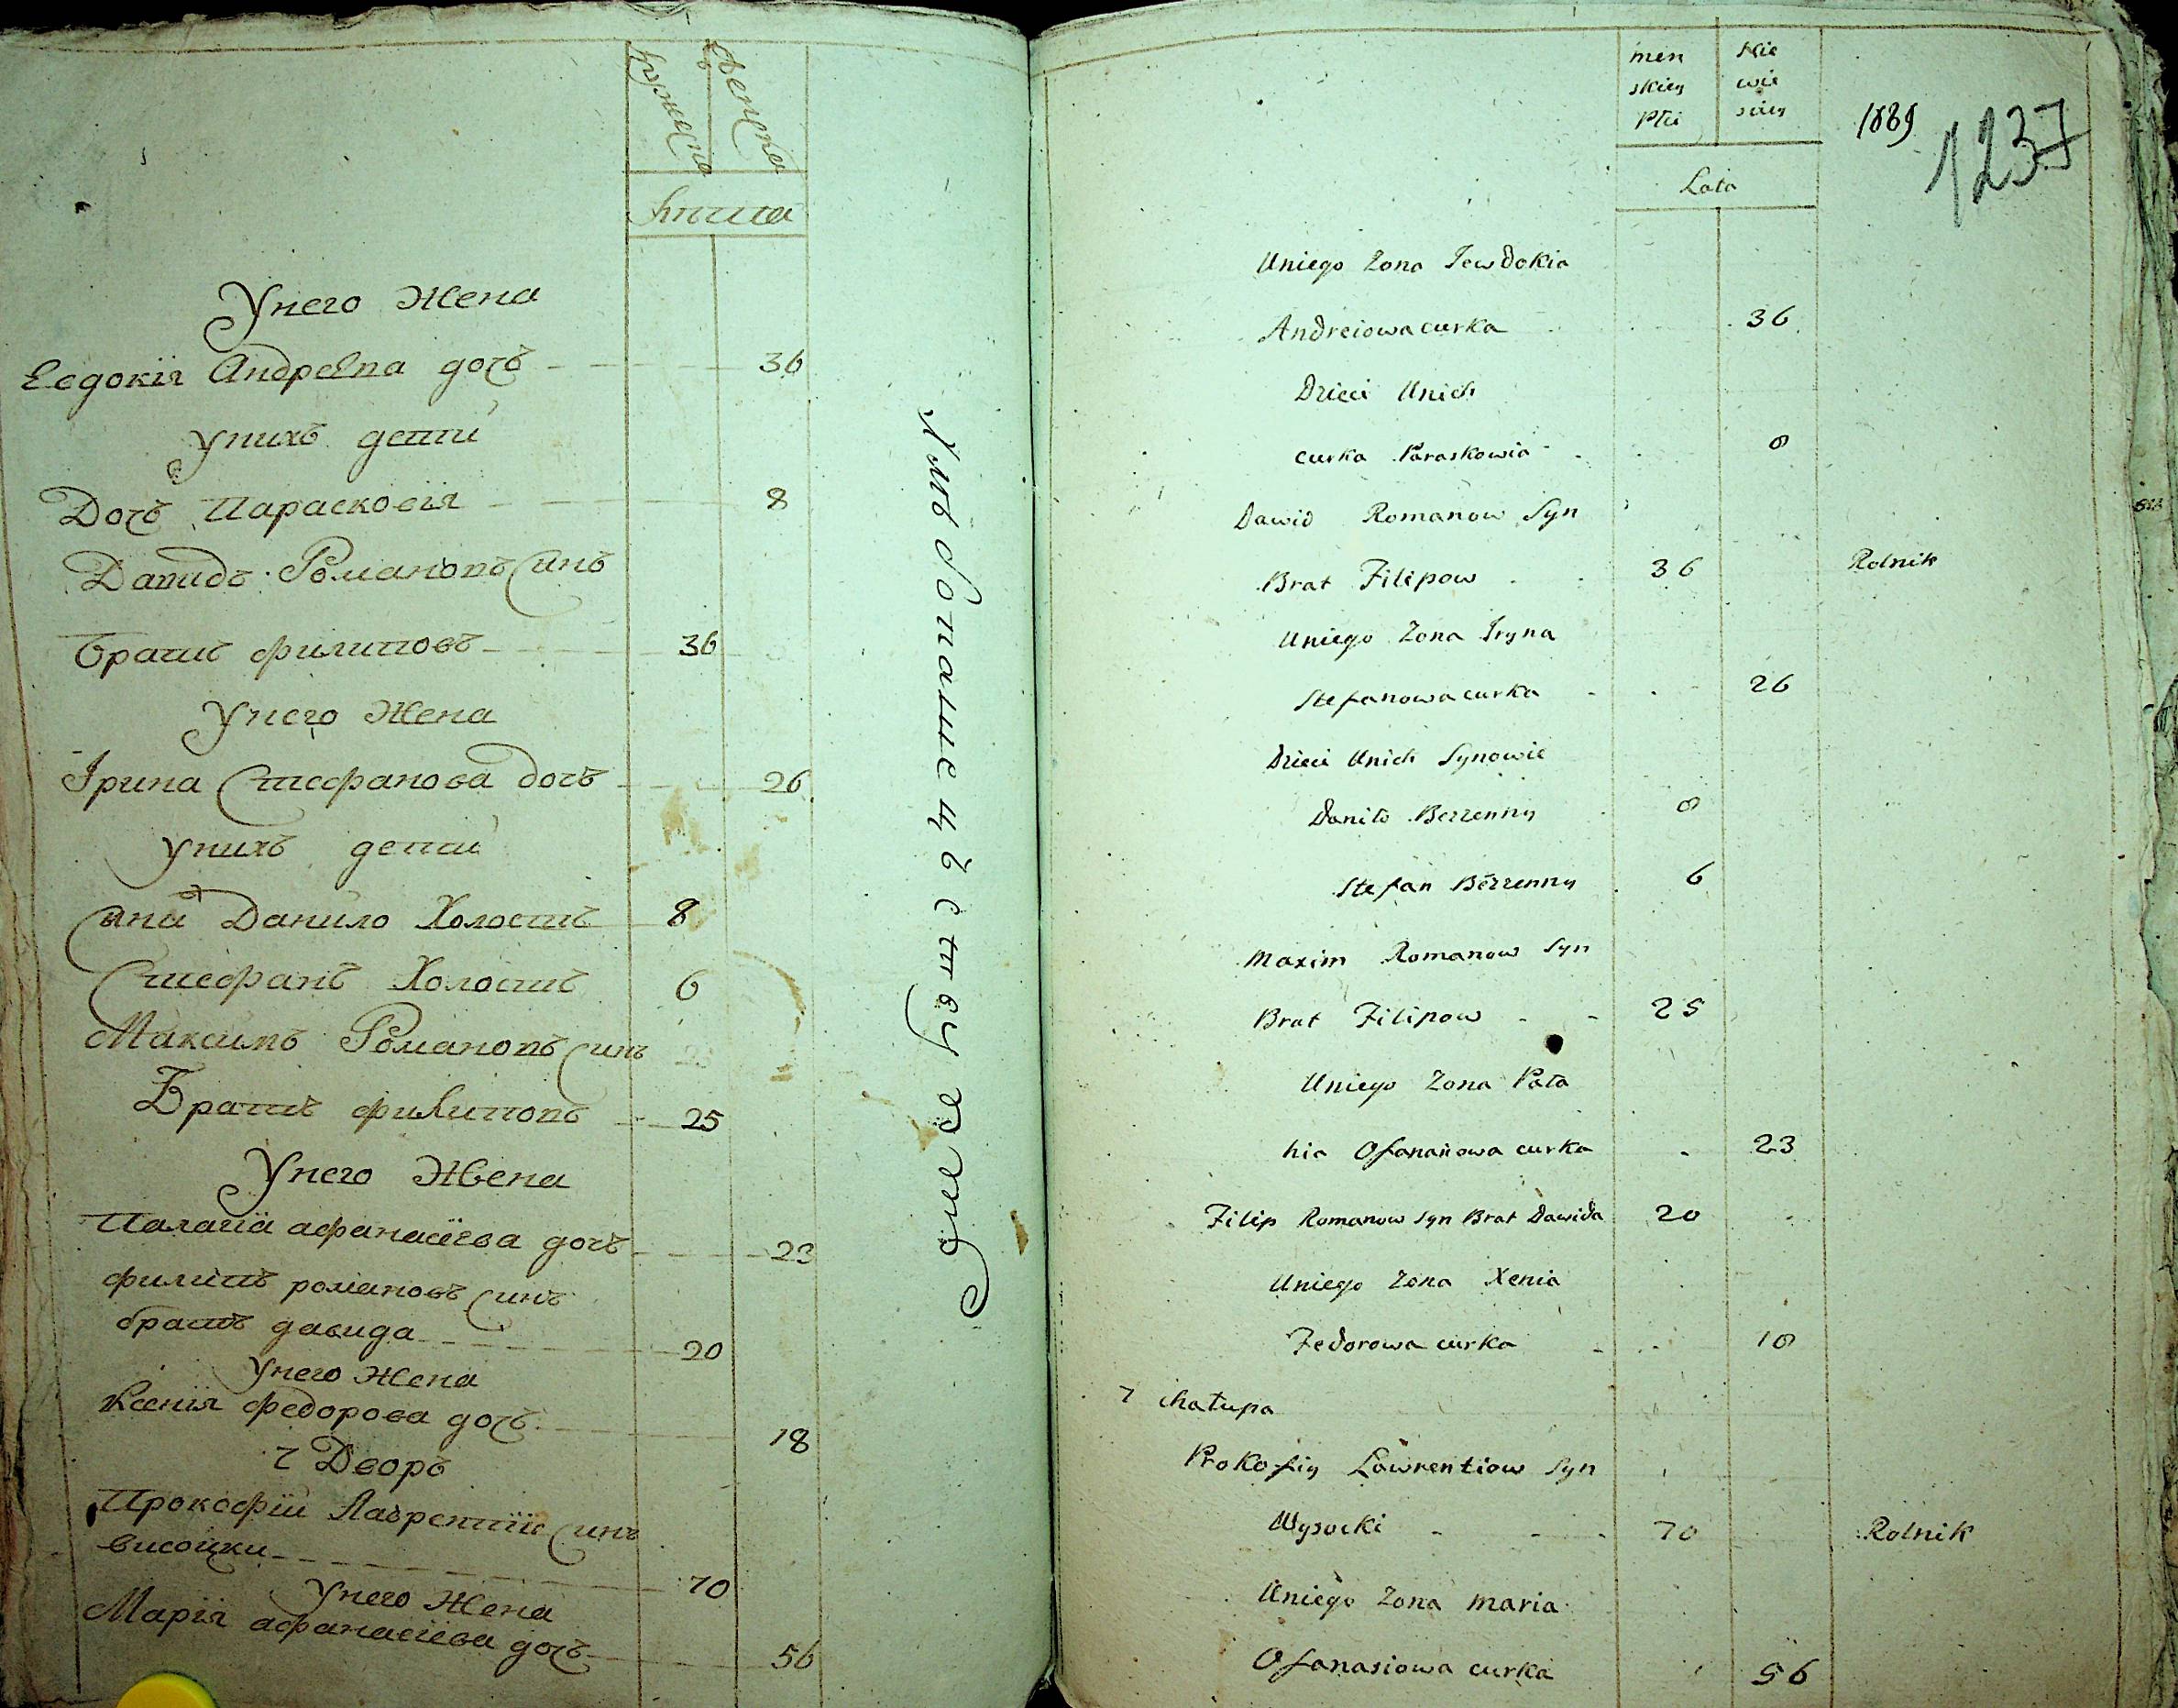 мужеска
женска
лѣта
Унего Жена
Евдокія Андрѣева дочъ 36
унихъ дети
Дочъ Парасковія 8
Давидъ Романовъ Синъ
Братъ филиповъ 36
Унего Жена
Ірина Стефанова дочъ 26
унихъ дети
Сина Данило Холостъ 8
Стефанъ Холостъ 6
Максимъ Романовъ Синъ
Братъ филиповъ 25
Унего Жена
Палагія афанасіева дочъ 23
филипъ романовъ Синъ
братъ давида 20
Унего Жена
Ксенія Федорова дочъ 18
7 Дворъ
Прокофій Лаврентіів Синъ
височки 70
Унего Жена
Марія афанасіева дочъ 56
men skiey płci
nie wie sciey
1889
1237
Lata
Uniego Zona Jewdokia
Andreiowa curka 36
Dzieci Unich
curka Paraskowia 8
Dawid Romanow Syn
Brat Filipow 36 Rolnik
Uniego Zona Iryna
Stefanowa curka 26
Dzieci Unich Synowie
Daniło Bezzenny 8
Stefan Bezzenny 6
Maxim Romanow Syn
Brat Filipow 25
Uniego Zona Pała
hia Ofanasiowa curka 23
Filip Romanow Syn Brat Dawida 20
Uniego Zona Xenia
Fedorowa curka 18
7 chałupa
Prokofiy Ławrentiow Syn
Wysocki 70 Rolnik
Uniego Zona Maria
Ofanasiowa curka 56